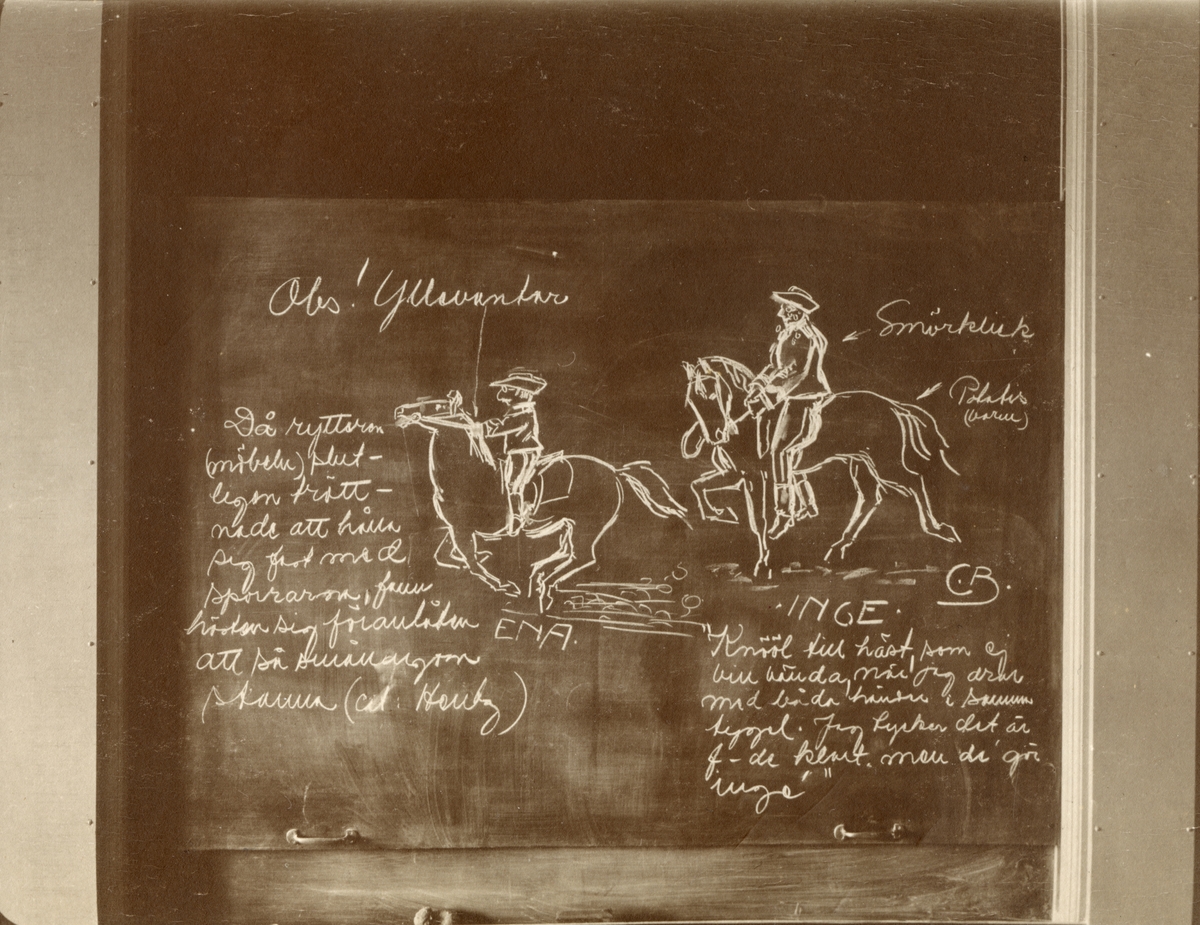 Obs! Yllevantar
Smörklick
Potatis
(varm)
Då ryttaren
(möbeln) slut-
ligen trött-
nade att hålla
sig fast med
sporrarna, fann
hästen sig föranlåten
att så småningom
stanna (cit:
ENA.
C.B.
·INGE·
"Knööl till häst, som ej
vill vända, när jag drar
med båda händer i samma
tygel. Jag tycker det är
f-de klart. men de' gör
inge'"